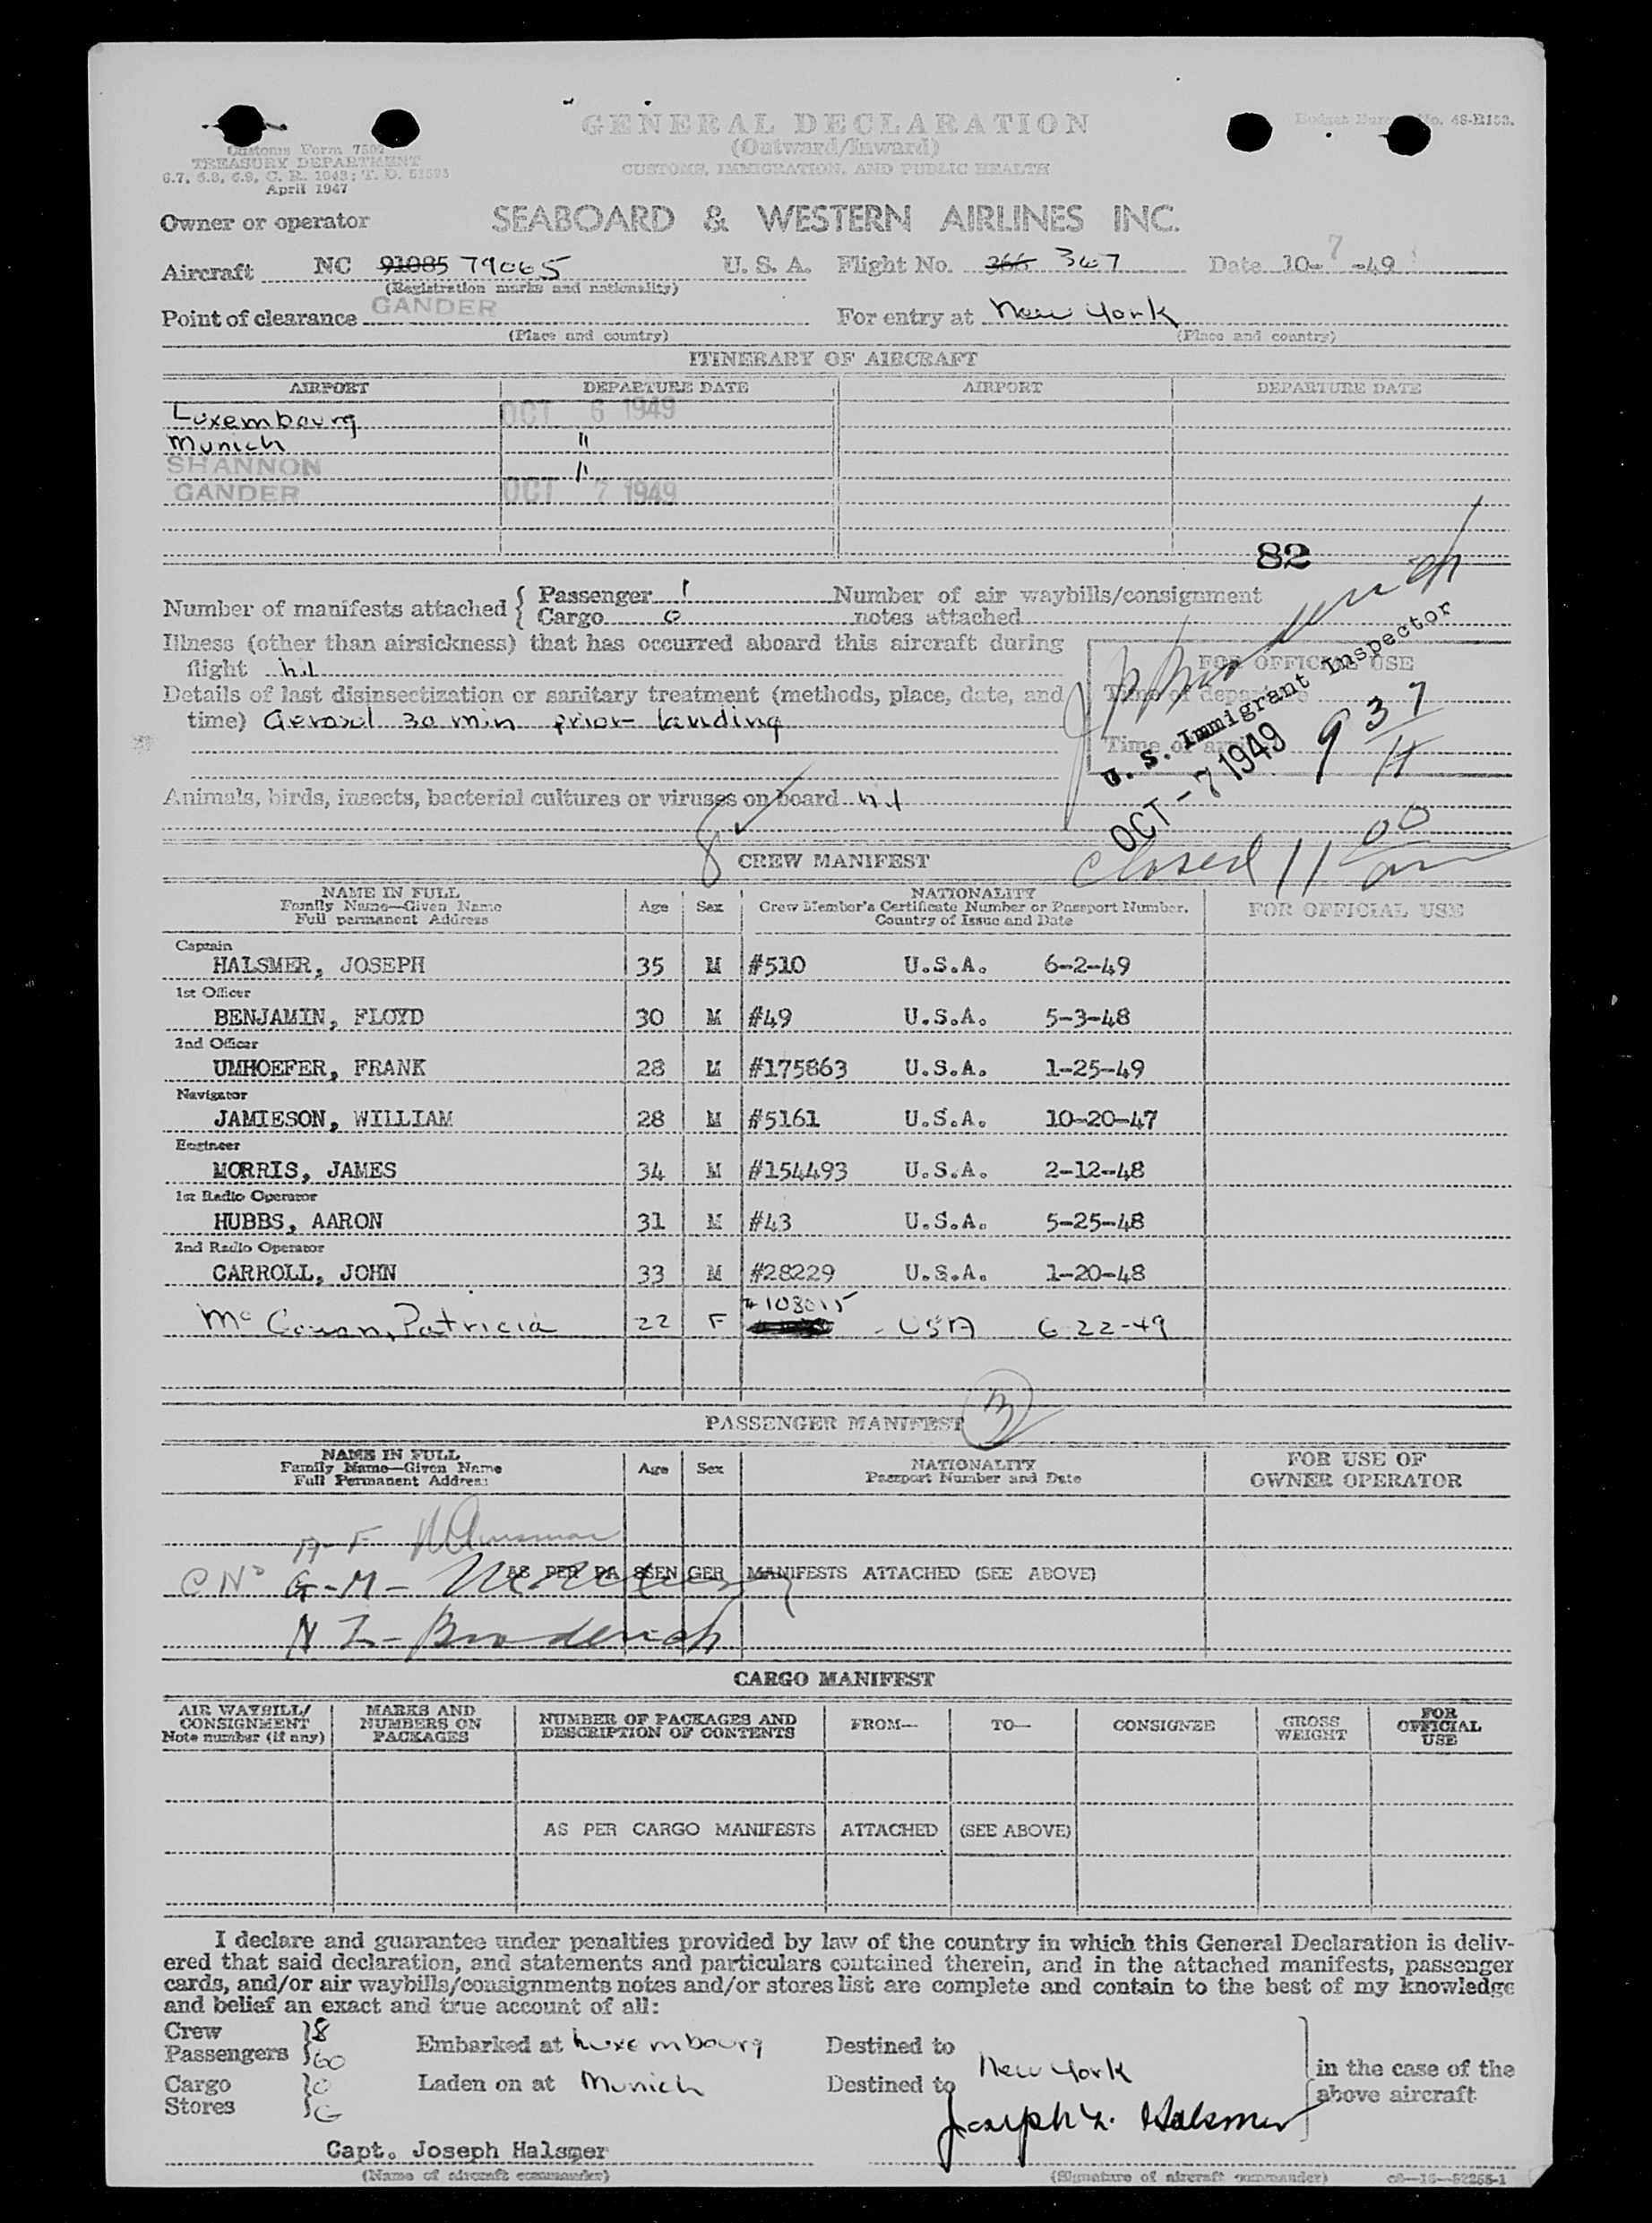 GENERAL DECLARATION
(Outward/Inward)
CUSTOMS, IMMIGRATION, AND PUBLIC HEALTH
Customs Form 7507
TREASURY DEPARTMENT
6.7, 6.8, 6.9, C. R. 1943; T. D. 51593
April 1947
Budget No. 48-R153.
Owner or operator SEABOARD & WESTERN AIRLINES INC.
Aircraft NC 91085 79065 U. S. A. Flight No. 366 367 Date 10-7-49
(Registration marks and nationality)
Point of clearance GANDER For entry at New York
(Place and country) (Place and country)
ITINERARY OF AIRCRAFT
AIRPORT DEPARTURE DATE AIRPORT DEPARTURE DATE
Luxembourg OCT 6 1949
Munich "
SHANNON "
GANDER OCT 7 1949
82
Number of manifests attached { Passenger 1 Number of air waybills/consignment
Cargo 0 notes attached
Illness (other than airsickness) that has occurred aboard this aircraft during
flight nil
FOR OFFICIAL USE
Details of last disinsectization or sanitary treatment (methods, place, date, and
time) Aerosol 30 min prior landing
Time of departure
Time of arrival
U. S. Immigrant Inspector
OCT - 7 1949
9 37
Animals, birds, insects, bacterial cultures or viruses on board nil
8
closed 11 00 am
CREW MANIFEST
NAME IN FULL Age Sex NATIONALITY FOR OFFICIAL USE
Family Name—Given Name Crew Member's Certificate Number or Passport Number.
Full permanent Address Country of Issue and Date
Captain
HALSMER, JOSEPH 35 M #510 U.S.A. 6-2-49
1st Officer
BENJAMIN, FLOYD 30 M #49 U.S.A. 5-3-48
2nd Officer
UMHOEFER, FRANK 28 M #175863 U.S.A. 1-25-49
Navigator
JAMIESON, WILLIAM 28 M #5161 U.S.A. 10-20-47
Engineer
MORRIS, JAMES 34 M #154493 U.S.A. 2-12-48
1st Radio Operator
HUBBS, AARON 31 M #43 U.S.A. 5-25-48
2nd Radio Operator
CARROLL, JOHN 33 M #28229 U.S.A. 1-20-48
McGowan, Patricia 22 F #108015 - USA 6-22-49
PASSENGER MANIFEST
NAME IN FULL Age Sex NATIONALITY FOR USE OF
Family Name—Given Name Passport Number and Date OWNER OPERATOR
Full Permanent Address
A-F
AS PER PASSENGER MANIFESTS ATTACHED (SEE ABOVE)
G-M-
N Z- Broderick
CARGO MANIFEST
AIR WAYBILL/ CONSIGNMENT Note number (if any) MARKS AND NUMBERS ON PACKAGES NUMBER OF PACKAGES AND DESCRIPTION OF CONTENTS FROM— TO— CONSIGNEE GROSS WEIGHT FOR OFFICIAL USE
AS PER CARGO MANIFESTS ATTACHED (SEE ABOVE)
I declare and guarantee under penalties provided by law of the country in which this General Declaration is deliv-
ered that said declaration, and statements and particulars contained therein, and in the attached manifests, passenger
cards, and/or air waybills/consignments notes and/or stores list are complete and contain to the best of my knowledge
and belief an exact and true account of all:
Crew 8
Passengers 60 Embarked at Luxembourg Destined to
New York in the case of the
Cargo 0 Laden on at Munich Destined to above aircraft
Stores
Joseph L. Halsmer
Capt. Joseph Halsmer
(Name of aircraft commander) (Signature of aircraft commander) c8—16—52255-1